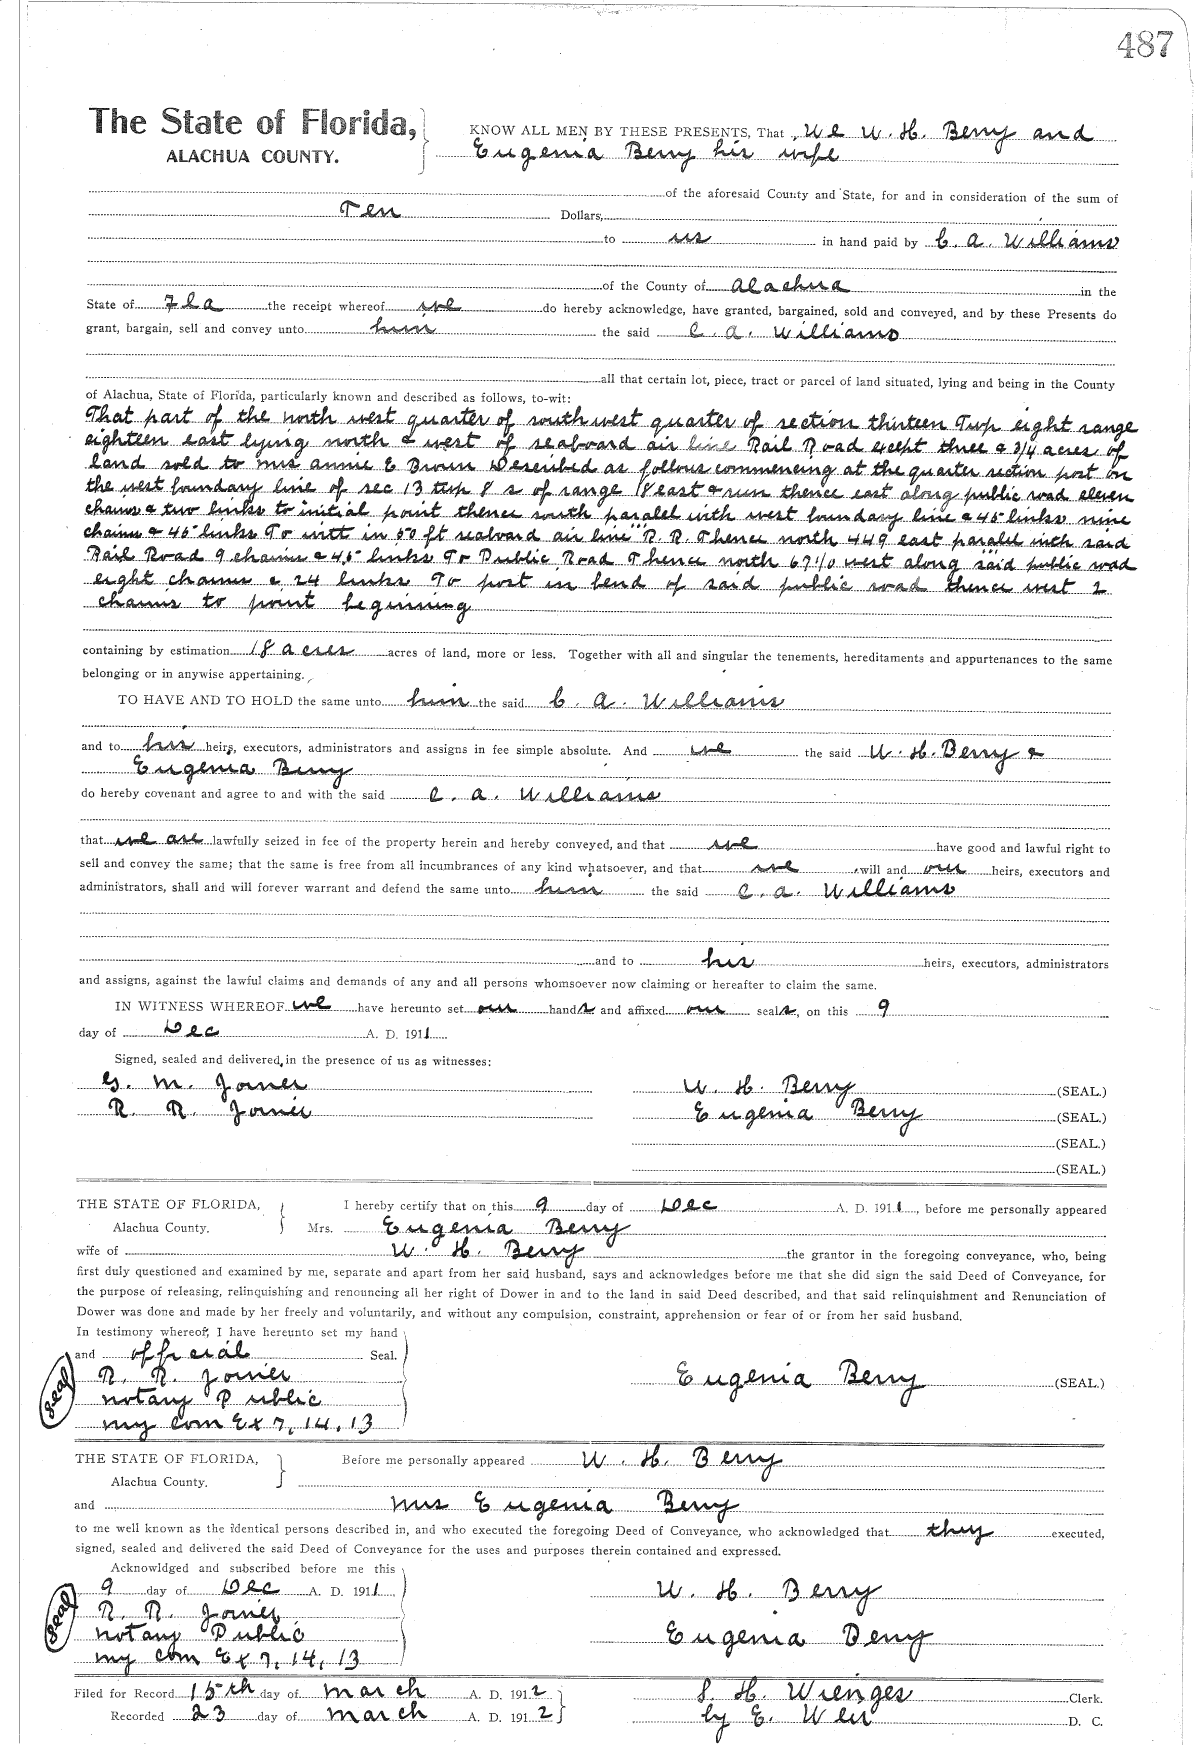 487
The State of Florida,
ALACHUA COUNTY.
KNOW ALL MEN BY THESE PRESENTS, That We W. H. Berry and
Eugenia Berry his wife
of the aforesaid County and State, for and in consideration of the sum of
Ten Dollars,
to us in hand paid by C. A. Williams
of the County of Alachua in the
State of Fla the receipt whereof we do hereby acknowledge, have granted, bargained, sold and conveyed, and by these Presents do
grant, bargain, sell and convey unto him the said C. A. Williams
all that certain lot, piece, tract or parcel of land situated, lying and being in the County
of Alachua, State of Florida, particularly known and described as follows, to-wit:
That part of the north west quarter of southwest quarter of section thirteen Twp eight range
eighteen east lying north & west of seaboard air line Rail Road except three & 3/4 acres of
land sold to mrs annie E Brown Described as follows commencing at the quarter section post on
the west boundary line of sec 13 twp 8 s of range 18 east & run thence east along public road eleven
chains & two links to initial point thence south paralel with west boundary line & 45 links nine
chains & 45 links To in 50 ft seaboard air line R. R. Thence north 449 east paralel with said
Rail Road 9 chains & 45 links To Public Road Thence north 67 1/0 west along said public road
eight chains & 24 links To post in bend of said public road thence west 2
chains to point beginning
containing by estimation 18 acres acres of land, more or less. Together with all and singular the tenements, hereditaments and appurtenances to the same
belonging or in anywise appertaining.
TO HAVE AND TO HOLD the same unto him the said C. A. Williams
and to his heirs, executors, administrators and assigns in fee simple absolute. And we the said W. H. Berry &
Eugenia Berry
do hereby covenant and agree to and with the said C. A. Williams
that we are lawfully seized in fee of the property herein and hereby conveyed, and that we have good and lawful right to
sell and convey the same; that the same is free from all incumbrances of any kind whatsoever, and that we will and our heirs, executors and
administrators, shall and will forever warrant and defend the same unto him the said C. A. Williams
and to his heirs, executors, administrators
and assigns, against the lawful claims and demands of any and all persons whomsoever now claiming or hereafter to claim the same.
IN WITNESS WHEREOF we have hereunto set our hands and affixed our seals, on this 9
day of Dec A. D. 1911
Signed, sealed and delivered in the presence of us as witnesses:
G. M. Joiner W. H. Berry (SEAL.)
R. R. Joiner Eugenia Berry (SEAL.)
(SEAL.)
(SEAL.)
THE STATE OF FLORIDA, I hereby certify that on this 9 day of Dec A. D. 1911, before me personally appeared
Alachua County. Mrs. Eugenia Berry
wife of W. H. Berry the grantor in the foregoing conveyance, who, being
first duly questioned and examined by me, separate and apart from her said husband, says and acknowledges before me that she did sign the said Deed of Conveyance, for
the purpose of releasing, relinquishing and renouncing all her right of Dower in and to the land in said Deed described, and that said relinquishment and Renunciation of
Dower was done and made by her freely and voluntarily, and without any compulsion, constraint, apprehension or fear of or from her said husband.
In testimony whereof, I have hereunto set my hand
and official Seal.
Seal R. R. Joiner Eugenia Berry (SEAL.)
notary Public
my com Ex 7, 14, 13
THE STATE OF FLORIDA, Before me personally appeared W. H. Berry
Alachua County.
and mrs Eugenia Berry
to me well known as the identical persons described in, and who executed the foregoing Deed of Conveyance, who acknowledged that they executed,
signed, sealed and delivered the said Deed of Conveyance for the uses and purposes therein contained and expressed.
Acknowldged and subscribed before me this
9 day of Dec A. D. 1911 W. H. Berry
Seal R. R. Joiner
notary Public Eugenia Berry
my com Ex 7, 14, 13
Filed for Record 15th day of march A. D. 1912 S. H. Wienges Clerk.
Recorded 23 day of march A. D. 1912 by E. Weir D. C.